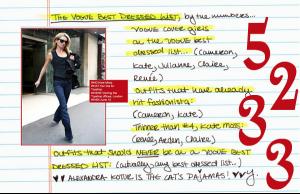 THE VOGUE BEST DRESSED LIST, by the numbers...
5
VOGUE cover girls
on the VOGUE best
dressed list... (Cameron,
Kate, Julianne, Claire,
Renée)
2
Outfits that have already
hit fashionista:
(Cameron, Kate)
3
Thinner than #4, Kate Moss:
(Renée, Arden, Claire)
3
Outfits that should NEVER be on a VOGUE BEST
DRESSED LIST: (actually-any best dressed list..)
♥♥ ALEXANDRA KOTUR IS THE CAT'S PAJAMAS! ♥♥